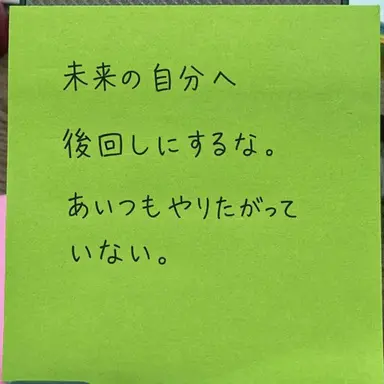 未来の自分へ
後回しにするな。
あいつもやりたがって
いない。